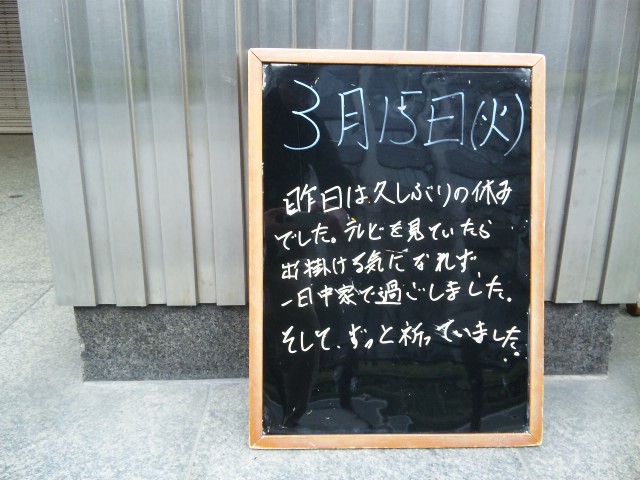 3月15日(火)
昨日は久しぶりの休み
でした。テレビを見ていたら
出掛ける気になれず、
一日中家で過ごしました。
そして、ずっと祈っていました。